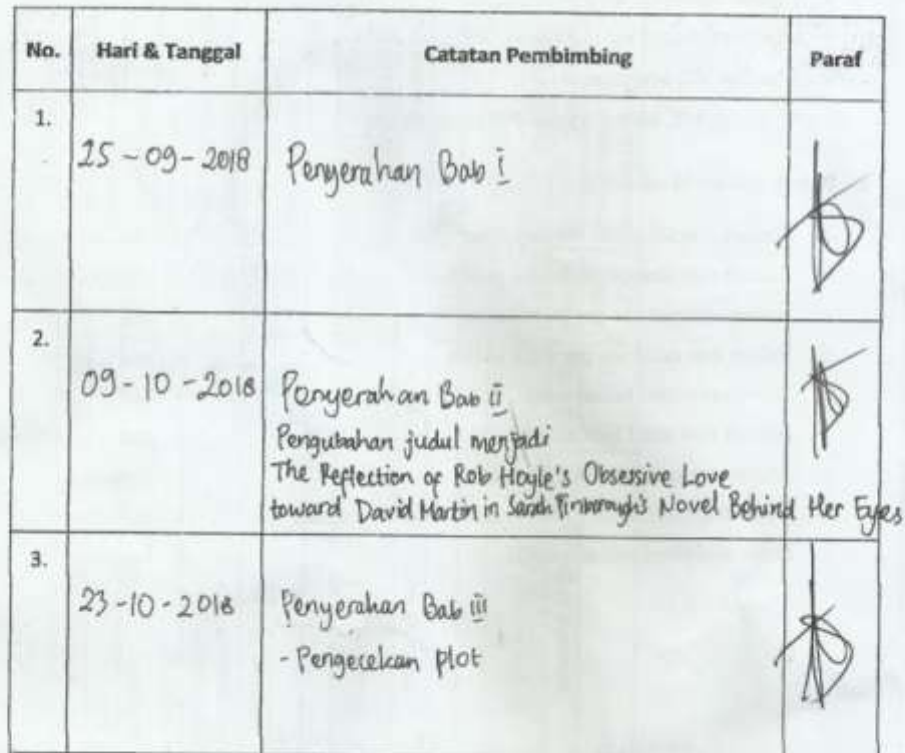 No. Hari & Tanggal Catatan Pembimbing Paraf
1.
25-09-2018 Penyerahan Bab I
2.
09-10-2018 Penyerahan Bab II
Pengubahan judul menjadi
The Reflection of Rob Hoyle's Obsessive Love
toward David Martin in Sarah Pinborough's Novel Behind Her Eyes
3.
23-10-2018 Penyerahan Bab III
- Pengecekan plot